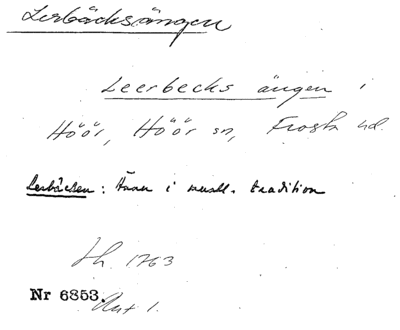 Lerbäcksängen
Leerbecks ängen i
Höör, Höör sn, Frosta hd.
Lerbäcken: Även i muntl. tradition
Sh. 1763
Nr 6853. Akt 1.